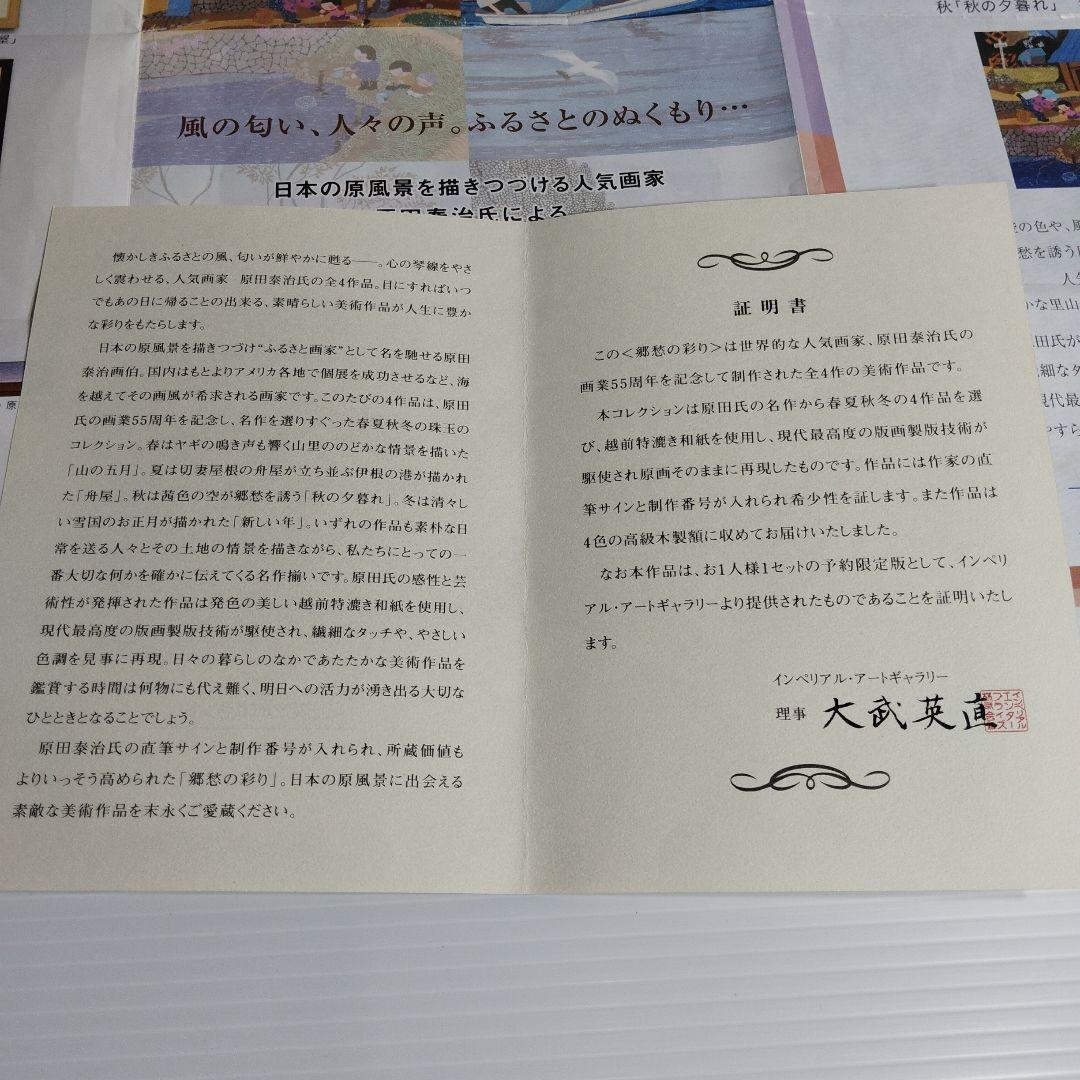 秋「秋の夕暮れ」
風の匂い、人々の声。ふるさとのぬくもり…
日本の原風景を描きつづける人気画家
原田泰治氏による
懐かしきふるさとの風、匂いが鮮やかに甦る──。心の琴線をやさ
しく震わせる、人気画家 原田泰治氏の全4作品。目にすればいつ
でもあの日に帰ることの出来る、素晴らしい美術作品が人生に豊か
な彩りをもたらします。
日本の原風景を描きつづけ“ふるさと画家”として名を馳せる原田
泰治画伯。国内はもとよりアメリカ各地で個展を成功させるなど、海
を越えてその画風が希求される画家です。このたびの4作品は、原田
氏の画業55周年を記念し、名作を選りすぐった春夏秋冬の珠玉の
コレクション。春はヤギの鳴き声も響く山里ののどかな情景を描いた
「山の五月」。夏は切妻屋根の舟屋が立ち並ぶ伊根の港が描かれ
た「舟屋」。秋は茜色の空が郷愁を誘う「秋の夕暮れ」。冬は清々し
い雪国のお正月が描かれた「新しい年」。いずれの作品も素朴な日
常を送る人々とその土地の情景を描きながら、私たちにとっての一
番大切な何かを確かに伝えてくる名作揃いです。原田氏の感性と芸
術性が発揮された作品は発色の美しい越前特漉き和紙を使用し、
現代最高度の版画製版技術が駆使され、繊細なタッチや、やさしい
色調を見事に再現。日々の暮らしのなかであたたかな美術作品を
鑑賞する時間は何物にも代え難く、明日への活力が湧き出る大切な
ひとときとなることでしょう。
原田泰治氏の直筆サインと制作番号が入れられ、所蔵価値も
よりいっそう高められた「郷愁の彩り」。日本の原風景に出会える
素敵な美術作品を末永くご愛蔵ください。
証明書
この＜郷愁の彩り＞は世界的な人気画家、原田泰治氏の
画業55周年を記念して制作された全4作の美術作品です。
本コレクションは原田氏の名作から春夏秋冬の4作品を選
び、越前特漉き和紙を使用し、現代最高度の版画製版技術が
駆使され原画そのままに再現したものです。作品には作家の直
筆サインと制作番号が入れられ希少性を証します。また作品は
4色の高級木製額に収めてお届けいたしました。
なお本作品は、お1人様1セットの予約限定版として、インペリ
アル・アートギャラリーより提供されたものであることを証明いたし
ます。
インペリアル・アートギャラリー
理事 大武英直
の色や、風
愁を誘う
人気
かな里山
田氏が
細なタ
現代最
やすら